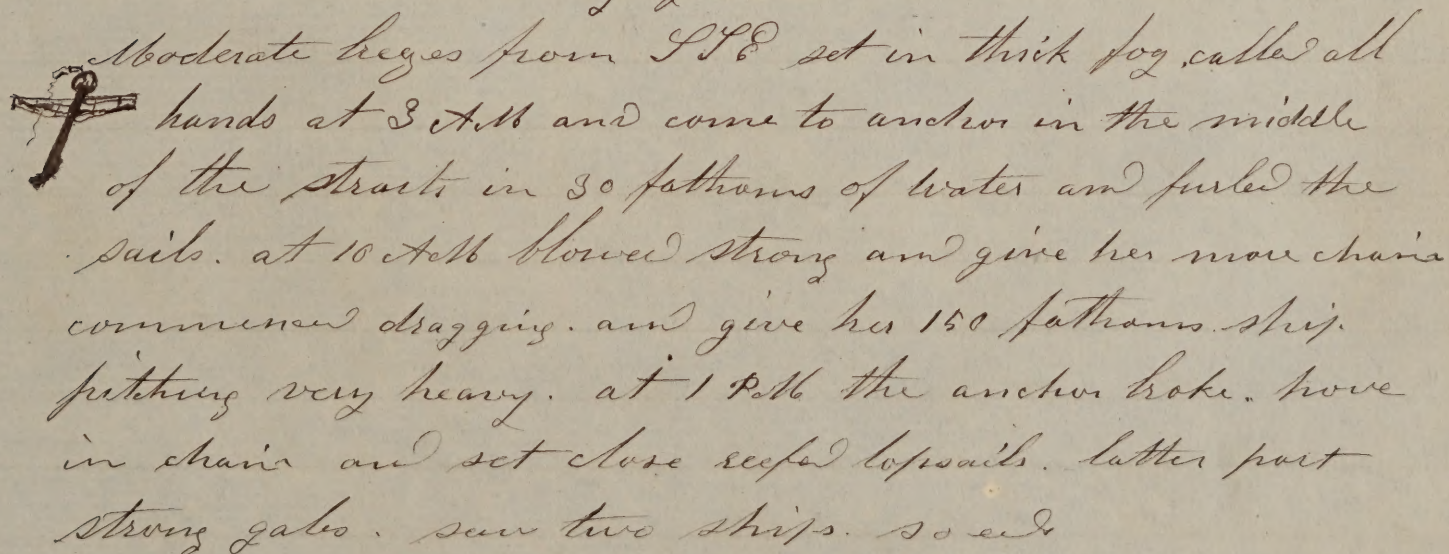 Moderate breezes from SSE set in thick fog. called all
hands at 3 AM and come to anchor in the middle
of the straits in 30 fathoms of water and furled the
sails. at 10 AM blowed strong and give her more chain
commenced dragging. and give her 150 fathoms. ship
pitching very heavy. at 1 PM the anchor broke. hove
in chain and set close reefed topsails. latter part
strong gales. saw two ships. so ends